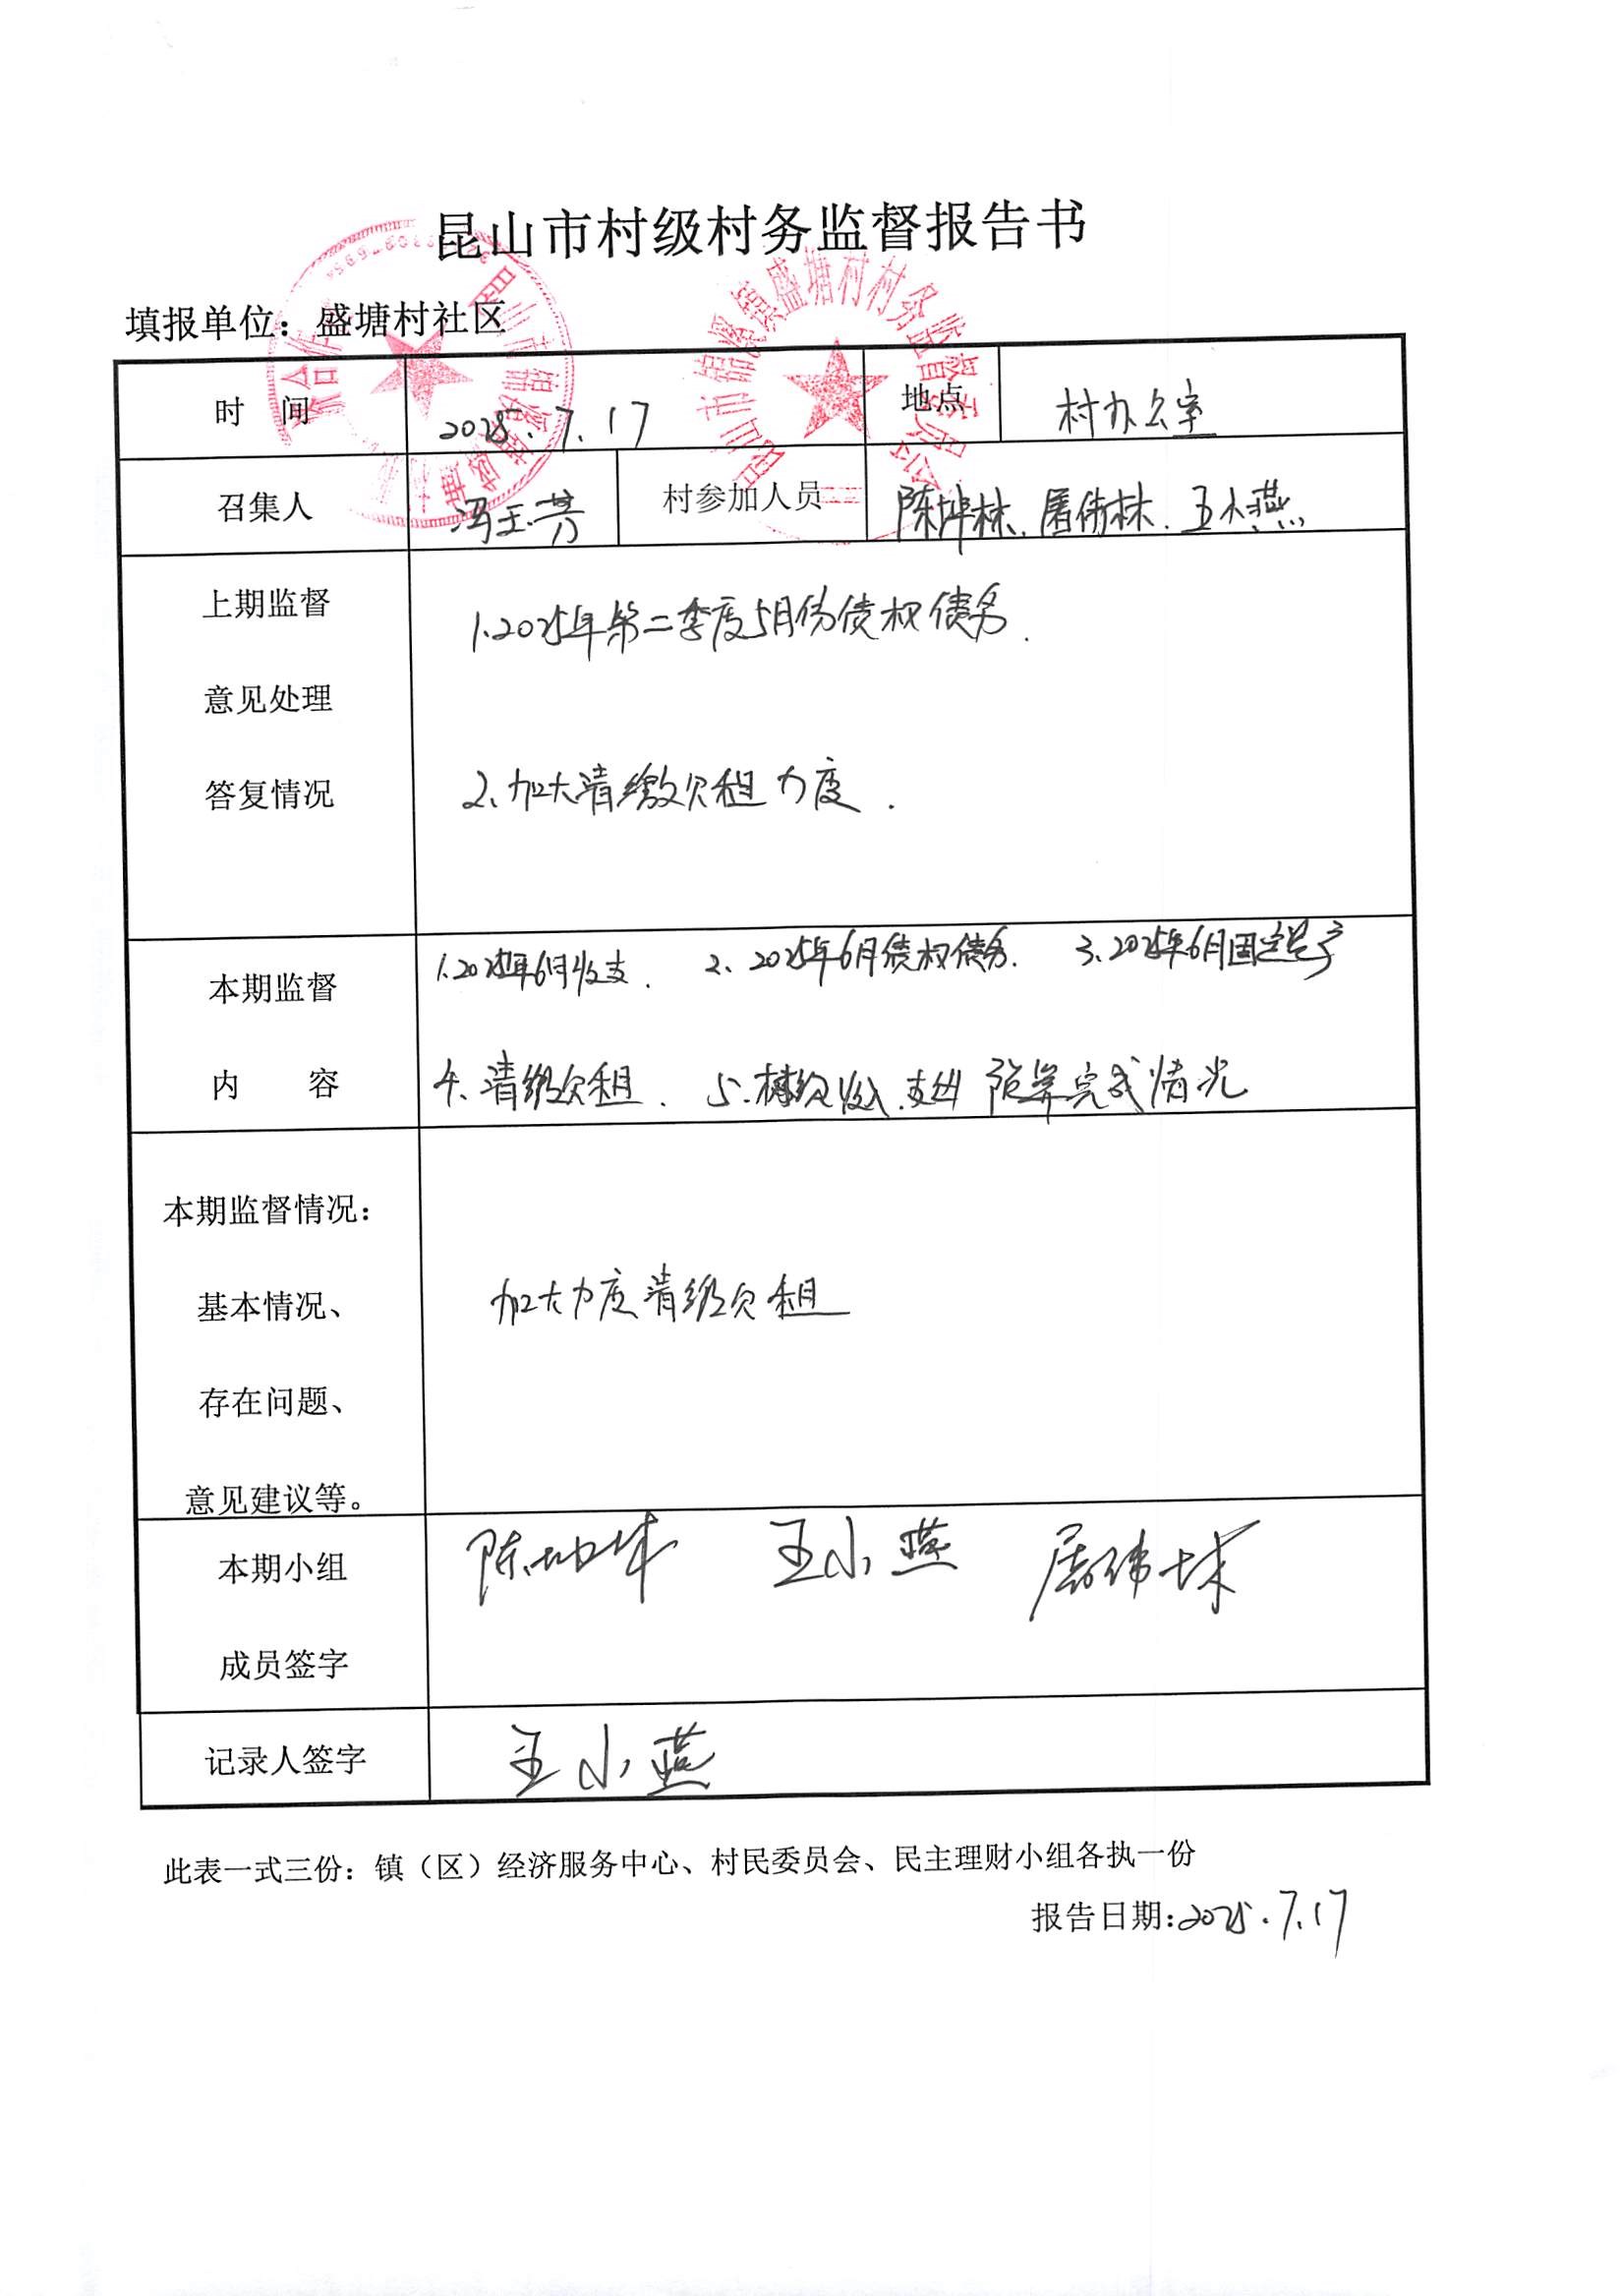 昆山市村级村务监督报告书
填报单位：盛塘村社区
时 间 2025.7.17 地点 村办公室
召集人 冯玉芳 村参加人员 陈坤林、屠伟林、王小燕
上期监督
意见处理
答复情况
1、2025年第二季度5月份债权债务.
2、加大清缴欠租力度.
本期监督
内 容
1、2025年6月收支. 2、2025年6月债权债务. 3、2025年6月固定资产
4、清缴欠租. 5、村级收入、支出预算完成情况
本期监督情况：
基本情况、
存在问题、
意见建议等。
加大力度清缴欠租
本期小组
成员签字
陈坤林 王小燕 屠伟林
记录人签字 王小燕
此表一式三份：镇（区）经济服务中心、村民委员会、民主理财小组各执一份
报告日期:2025.7.17
昆山市锦溪镇盛塘村村务监督委员会